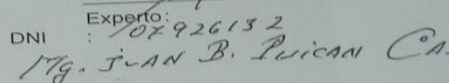 Experto:
DNI : 07926132
Mg. JUAN B. PUICAN CA.